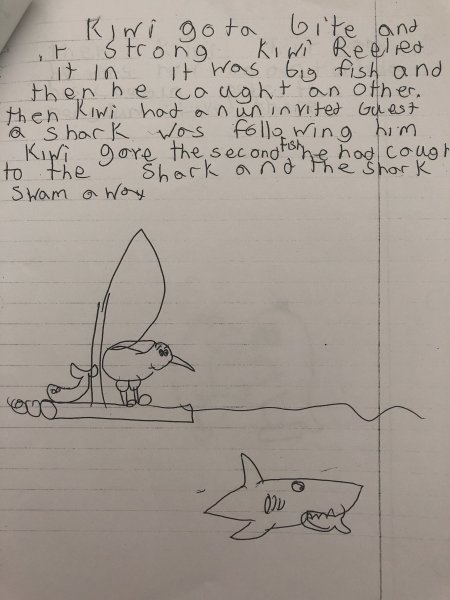 Kiwi got a bite and
it strong Kiwi Reelied
it in it was big fish and
then he caught an other.
then Kiwi had an uninvited Guest
a shark was following him
Kiwi gave the second fish he had caugh
to the Shark and the Shark
Swam away